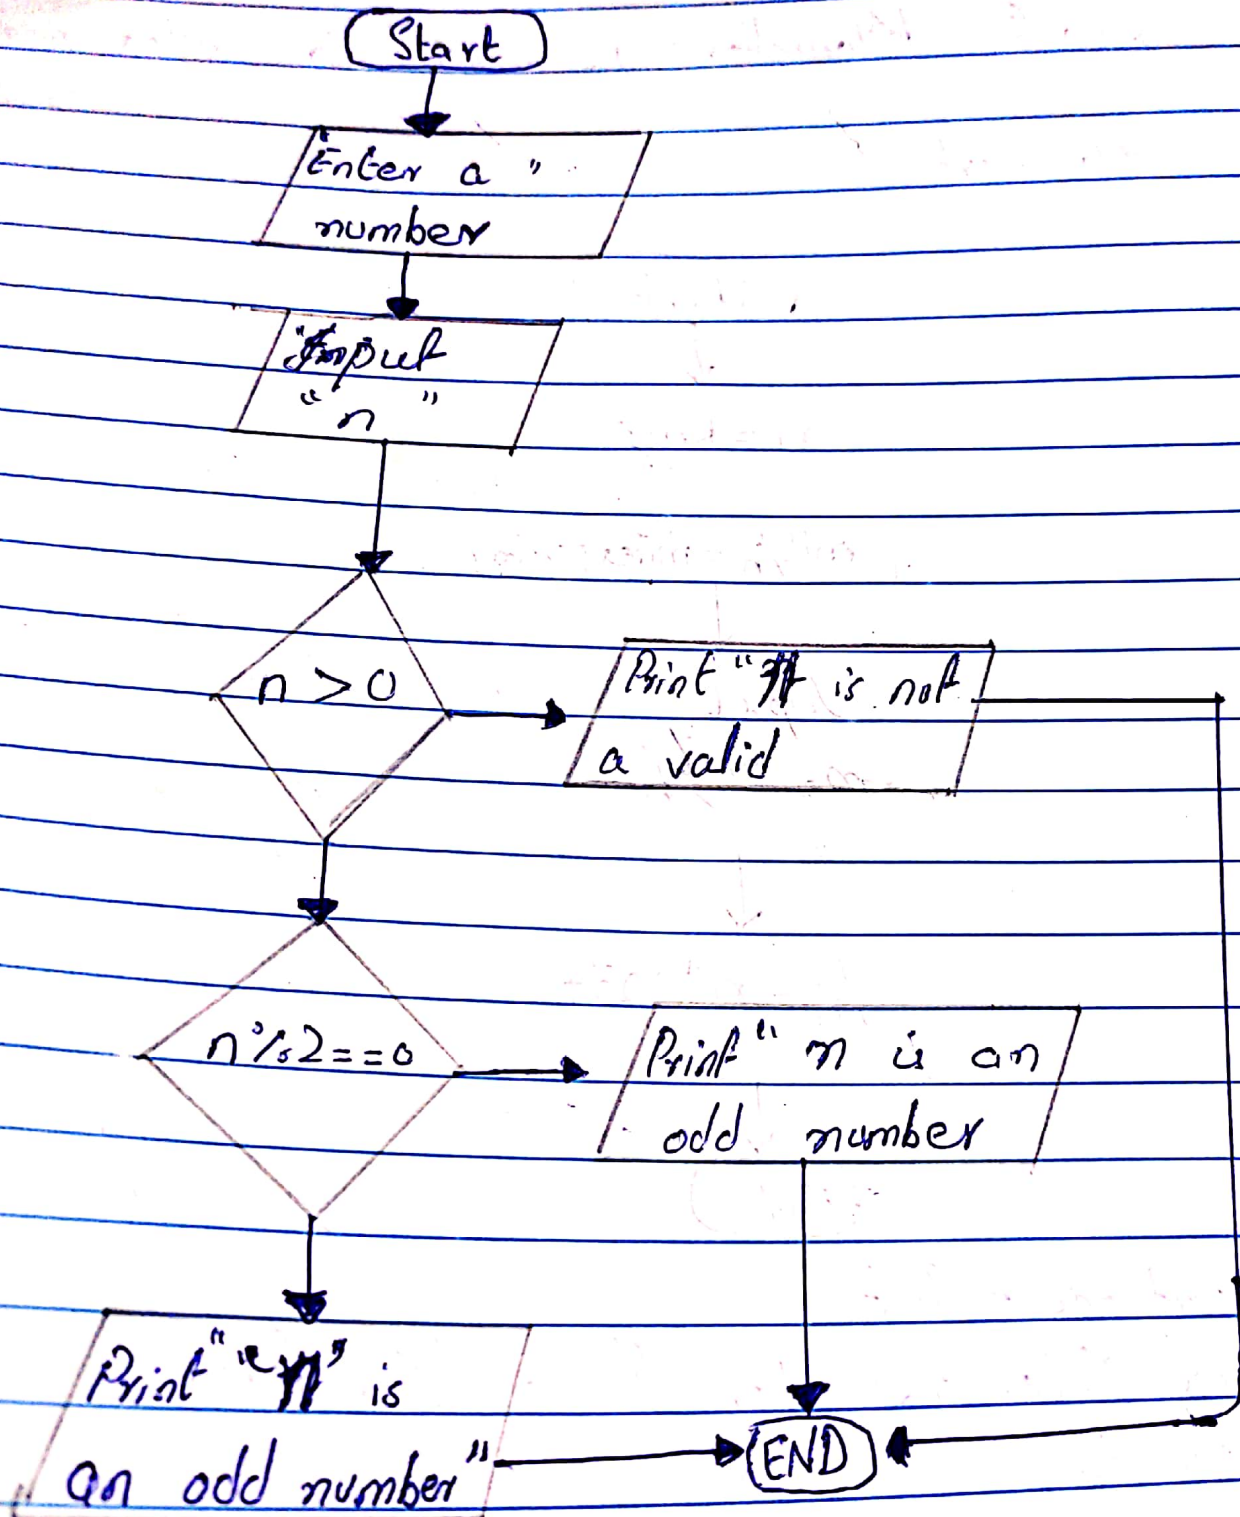 Start
Enter a "
number
Input
" n "
n > 0
Print " n is not
a valid
n%2==0
Print " n is an
odd number
Print " "n" is
an odd number"
END